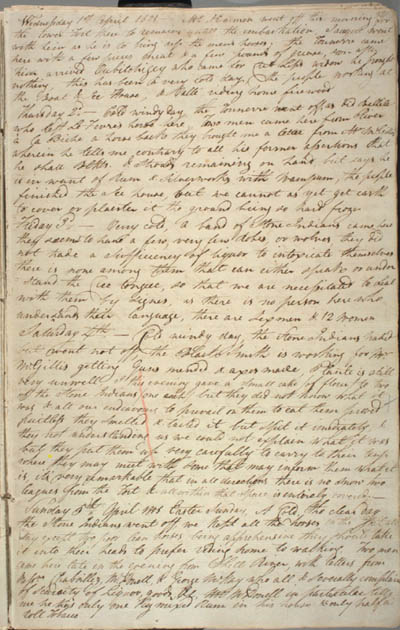 Wednesday 1st April 1801 Mr. Harmon went off this morning for
the lower Fort there to remain untill the embarkation
with him as he is to bring up the mens horses, the came
here with a few pieces meat & a few pounds of grease, soon after
them arrived he brought
nothing, this has been a very cold day, the people working at
the Boat & Ice House, & riding home firewood
Thursday 2d — Cold windy day, the went off as did
who left 2 horses two men came here from River
La Biche a horse back they brought me a letter from Mr
wherein he tells me contrary to all his former assertions that
he shall remaining on hand but says he
is in want of Rum & Silverworks with wampum, the people
finished the Ice house, but we cannot as yet get earth
to cover or plaister it the ground being so hard froze
Friday 3d — Very cold, a band of Stone Indians came here
they seem to have a few, very few robes, or wolves they did
not trade a sufficiency of liquor to intoxicate themselves
there is none among them that can either speak or under
stand the Cree tongue, so that we are necessitated to deal
with them by signes, as there is no person here who
understands their language, there are six men & 12 women
Saturday 4th — Cold windy day, the Stone Indians traded
but went not off the Black Smith is working for Mr
McGillis getting Guns mended & axes made is still
very unwell, this evening gave a small cake of flour to two
of the Stone Indians, one each but they did not know what
it was & all our endeavours to prevail on them to eat them proved
fruitless they smelled & tasted it but spit it immediately, &
they not understanding us we could not explain what it was
but they put them up very carefully to carry to their tents
where they may meet with some that may inform them what it
is, its very remarkable that in all directions there is no snow two
leagues from the Fort & all within that space is entirely covered
Sunday 5th April 1801 Easter Sunday. A Cold, tho clear day
the Stone Indians went off we all the horses
two lean horses being apprehensive they should take
it into their heads to prefer riding home to walking two men
came here late in the evening from River, with letters from
Messrs Chaboillez, McDonell, & George McKay who all & severally complain
of scarcity of liquor, goods &c, Mr McDonell in particular tells
me he has only one Keg mixed Rum in his house & only half a
roll Tobacco